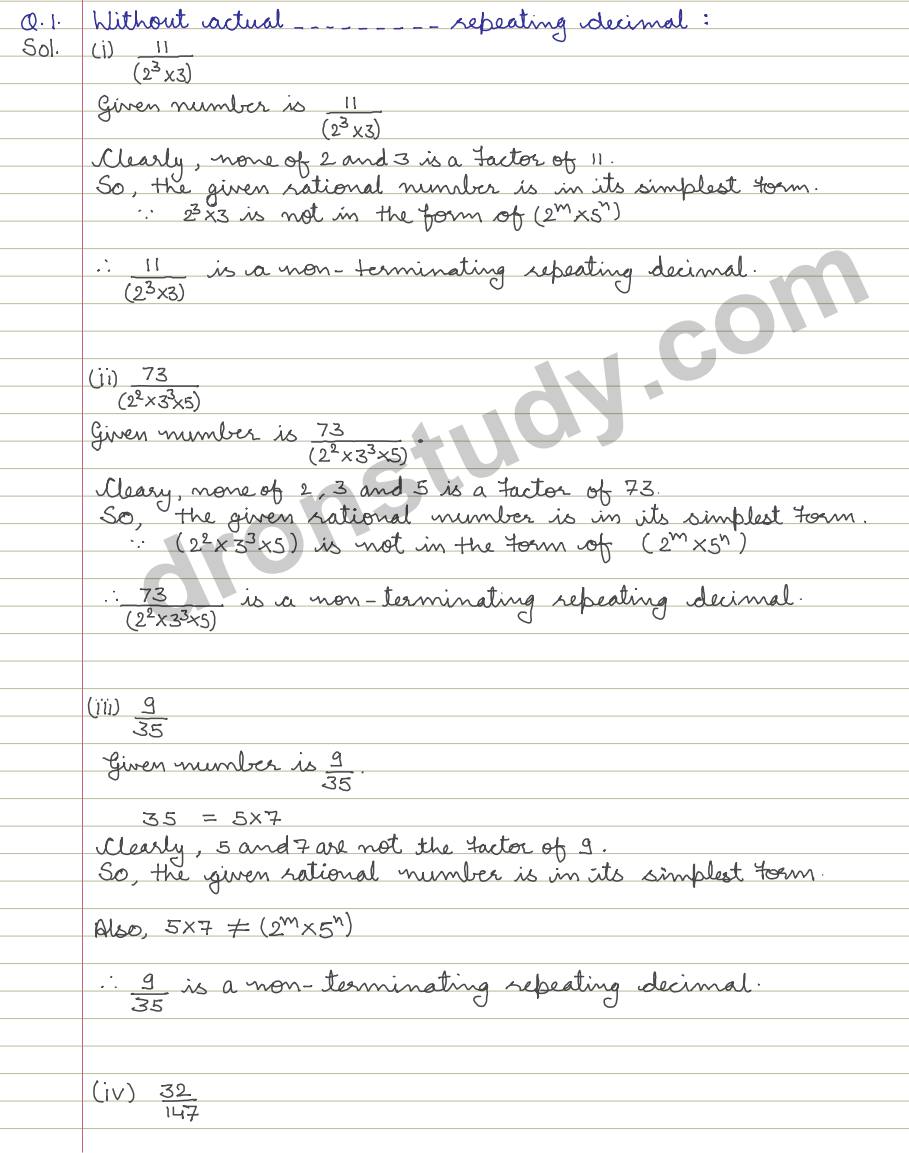 Q.1. Without actual --------- repeating decimal :
Sol. (i) 11/(2³×3)
Given number is 11/(2³×3)
Clearly, none of 2 and 3 is a factor of 11.
So, the given rational number is in its simplest form.
∵ 2³×3 is not in the form of (2ᵐ×5ⁿ)
∴ 11/(2³×3) is a non-terminating repeating decimal.
(ii) 73/(2²×3³×5)
Given number is 73/(2²×3³×5).
Cleary, none of 2, 3 and 5 is a factor of 73.
So, the given rational number is in its simplest form.
∵ (2²×3³×5) is not in the form of (2ᵐ×5ⁿ)
∴ 73/(2²×3³×5) is a non-terminating repeating decimal.
(iii) 9/35
Given number is 9/35.
35 = 5×7
Clearly, 5 and 7 are not the factor of 9.
So, the given rational number is in its simplest form.
Also, 5×7 ≠ (2ᵐ×5ⁿ)
∴ 9/35 is a non-terminating repeating decimal.
(iv) 32/147
dronstudy.com